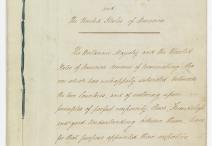 and
The United States of America
His Britannic Majesty and the United
States of America desirous of terminating the
war which has unhappily subsisted between
the two Countries, and of restoring upon
principles of perfect reciprocity, Peace, Friendship
and good Understanding between them, have
for that purpose appointed their respective